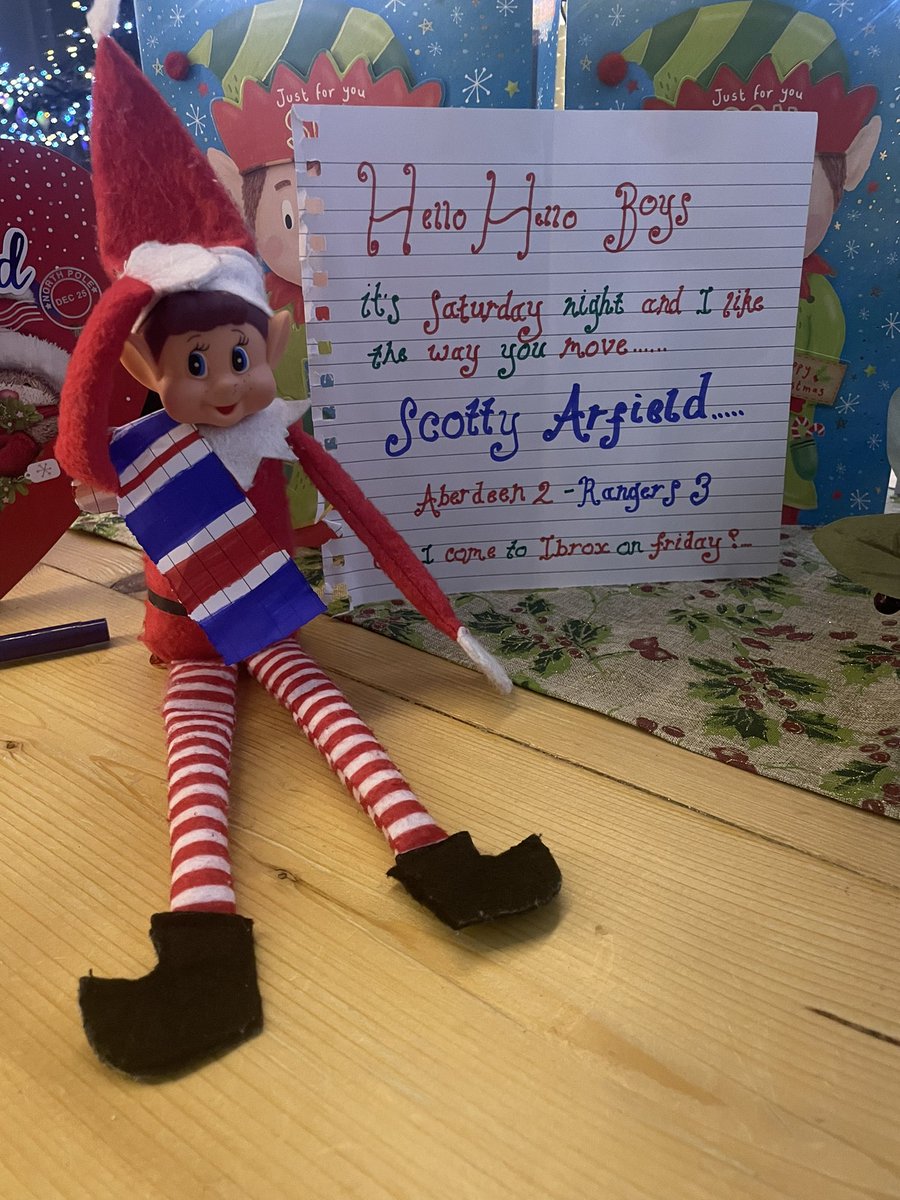 Just for you
Just for you
Hello Hello Boys
it's Saturday night and I like
the way you move......
Scotty Arfield.....
Aberdeen 2 - Rangers 3
I come to Ibrox on friday?...
d
NORTH POLE
DEC 25